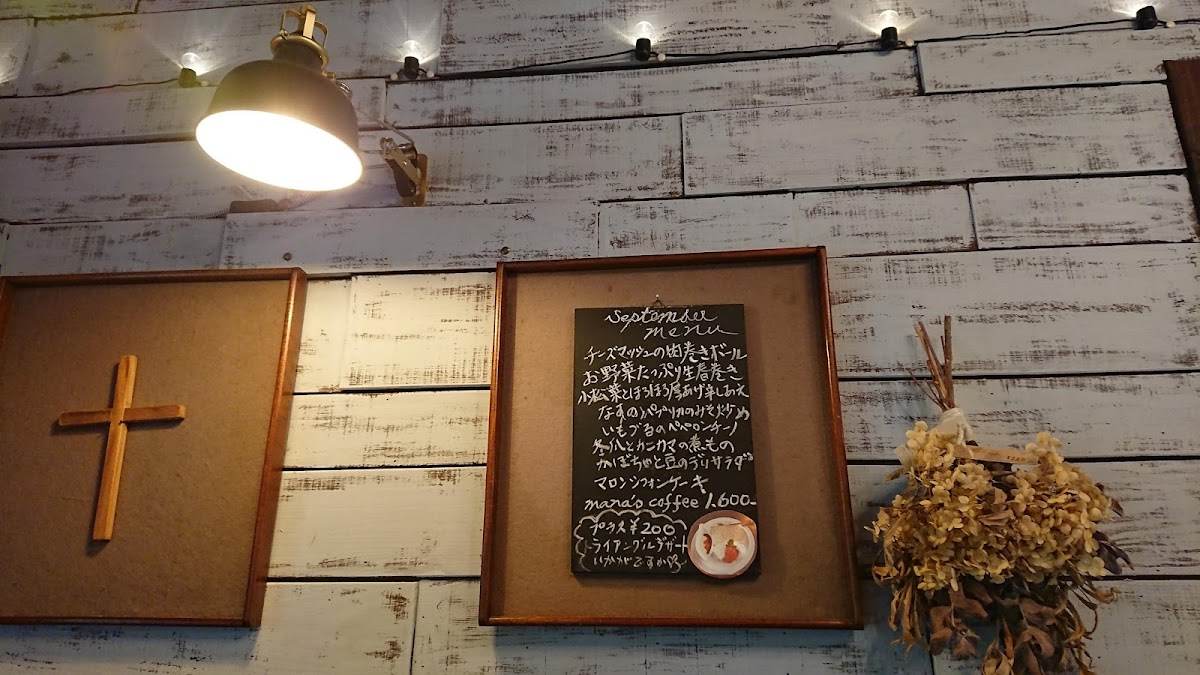 september
menu
チーズマッシュの肉巻きボール
お野菜たっぷり生春巻き
小松菜とほろほろ厚あげ辛しあえ
なすのパプリカのみそ炒め
いもづるのペペロンチーノ
冬瓜とカニカマの煮もの
かぼちゃと豆のデリサラダ
マロンシフォンケーキ
mana's coffee 1.600-
プラス¥200
トライアングルデザート
いかがですか